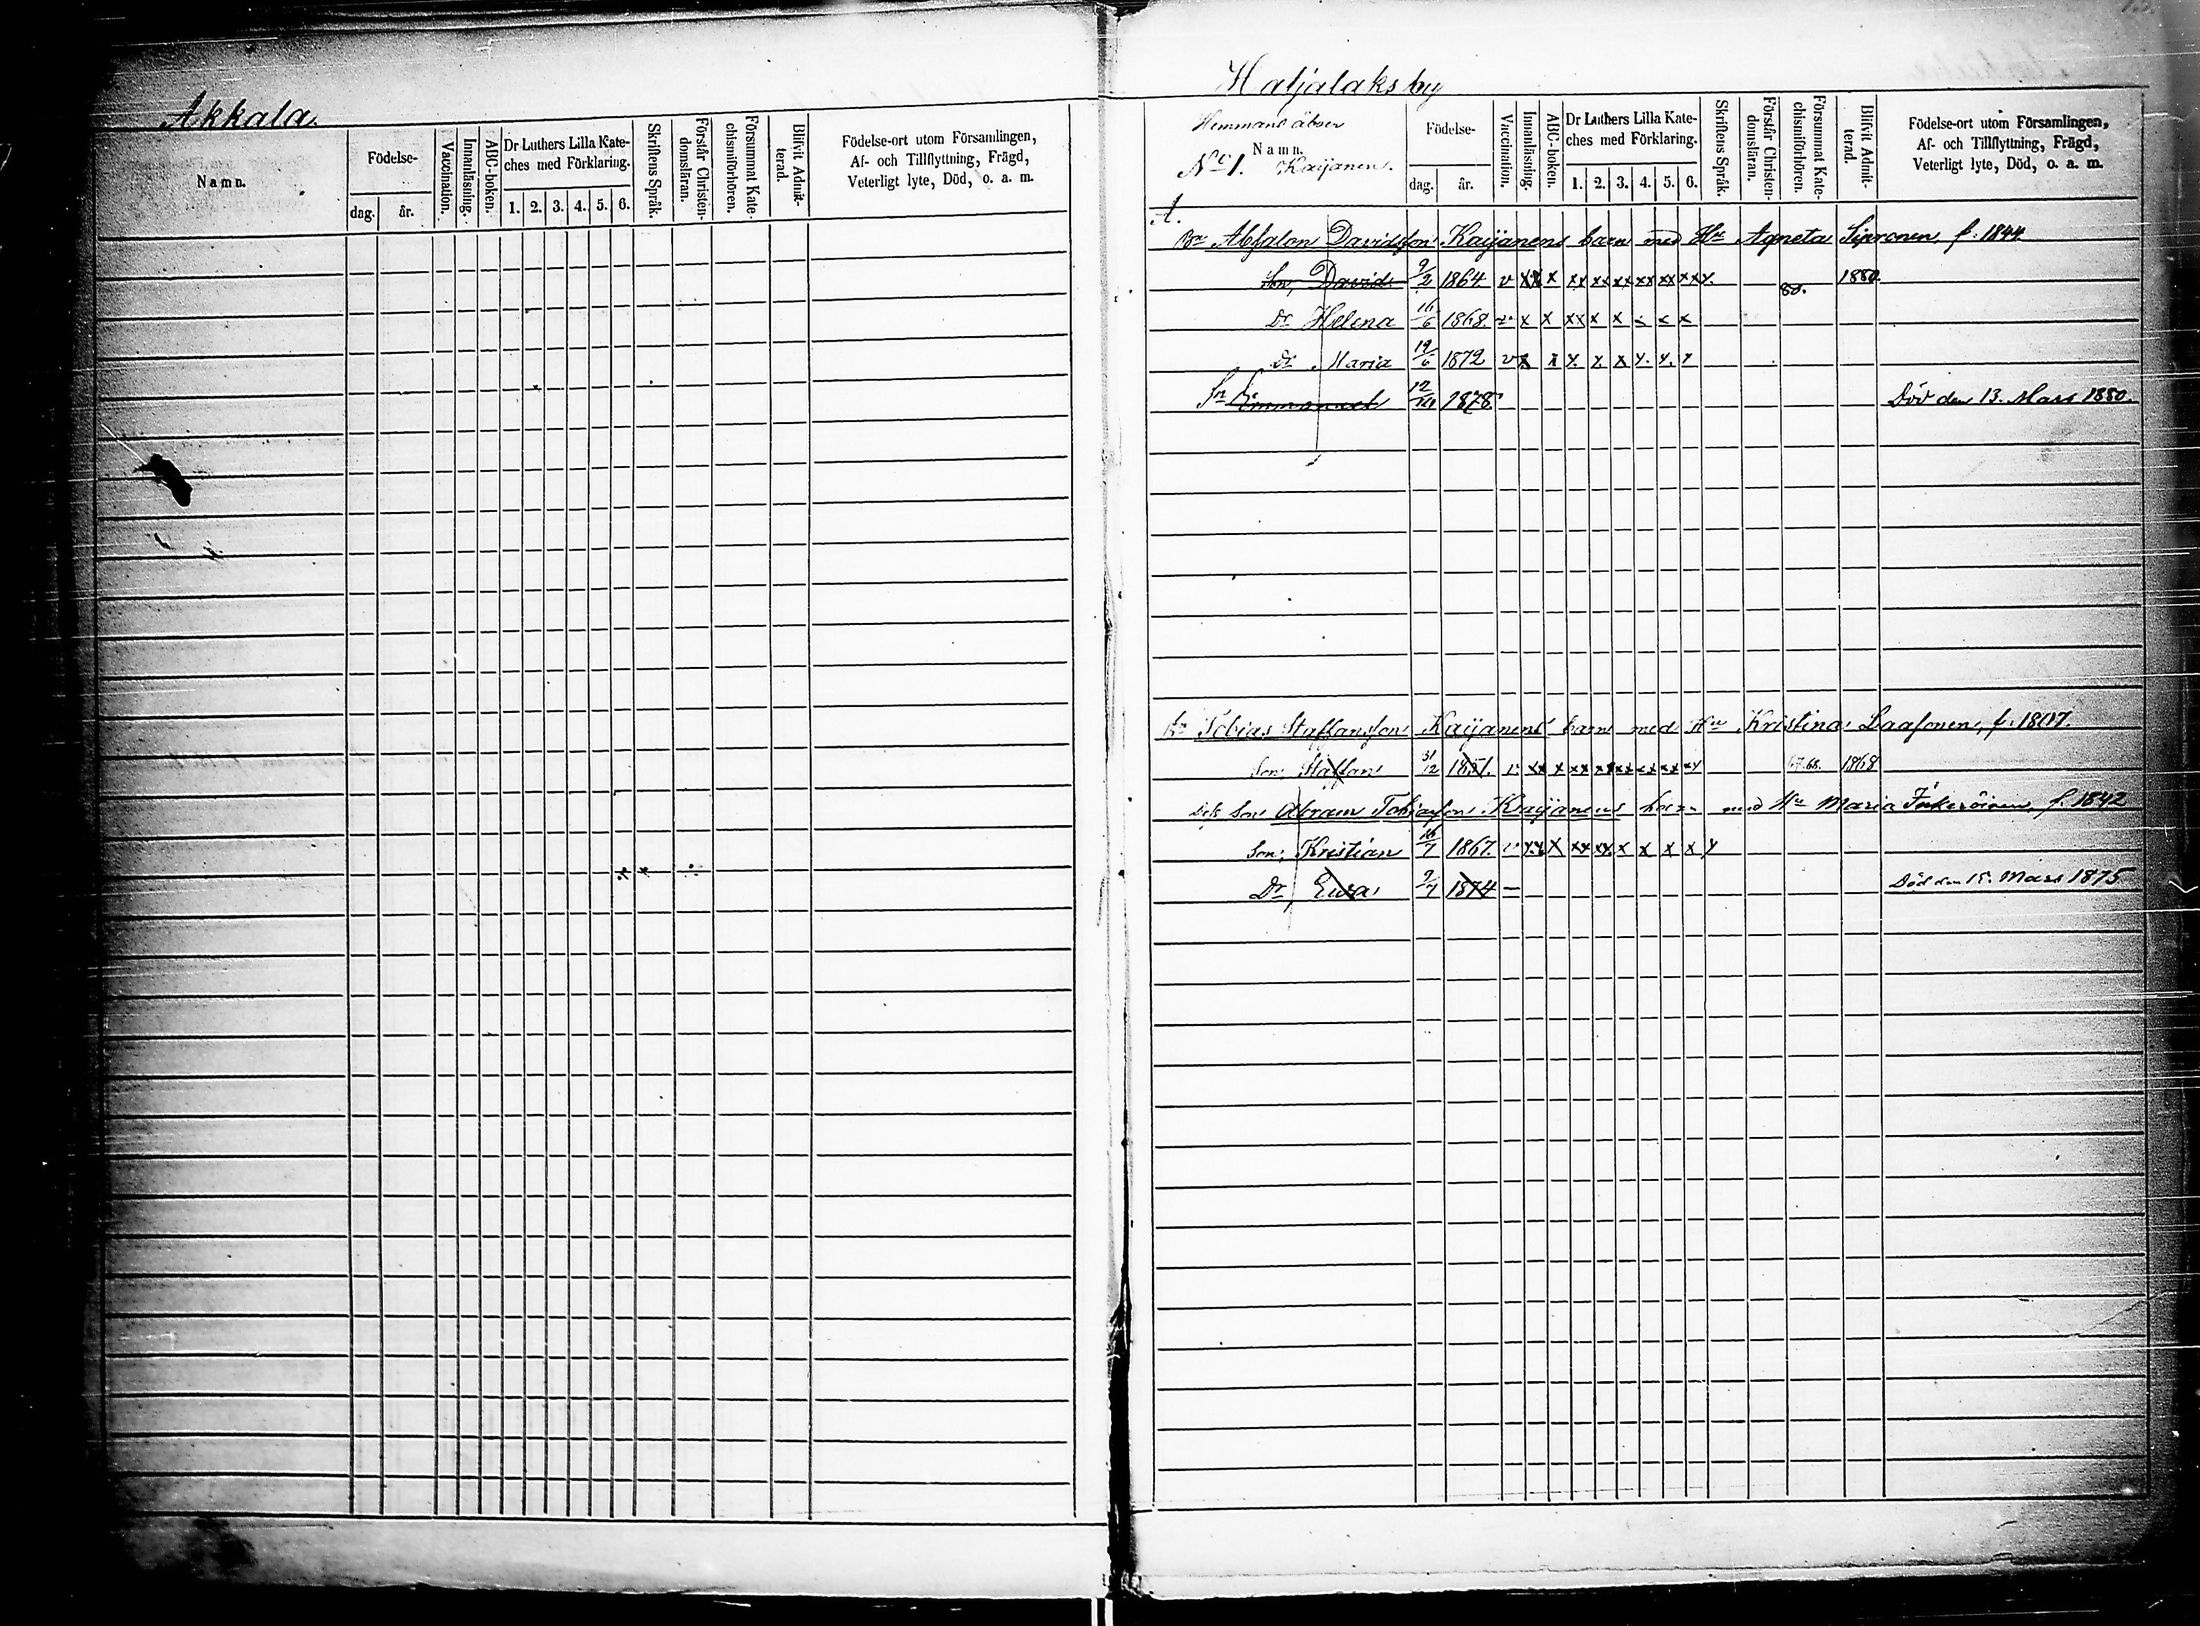 Akkala.
Namn.
Födelse-
dag. år.
Vaccination.
Innanläsning.
ABC-boken.
Dr Luthers Lilla Kate-
ches med Förklaring.
1. 2. 3. 4. 5. 6.
Skriftens Språk.
Förstår Christen-
domsläran.
Försummat Kate-
chismiförhören.
Blifvit Admit-
terad.
Födelse-ort utom Församlingen,
Af- och Tillflyttning, Frägd,
Veterligt lyte, Död, o. a. m.
x x
Hatjalaks by
Hemmans åboer
Namn.
No 1. Kaijanen.
Födelse-
dag. år.
Vaccination.
Innanläsning.
ABC-boken.
Dr Luthers Lilla Kate-
ches med Förklaring.
1. 2. 3. 4. 5. 6.
Skriftens Språk.
Förstår Christen-
domsläran.
Försummat Kate-
chismiförhören.
Blifvit Admit-
terad.
Födelse-ort utom Församlingen,
Af- och Tillflyttning, Frägd,
Veterligt lyte, Död, o. a. m.
1.
Bn Absalon Davidsson Kaijanens barn med Hu Agneta Sipronen, f. 1844
Son, David 9/2 1864 v xx x xx xx xx xx xx xx x. 80. 1880.
Dr Helena 16/6 1868. v x x xx x x x x x
Dr Maria 19/6 1872 v x x x x x x x x
Sn Emmanuel 12/10 1878. Död den 13. Mars 1880.
Bn Tobias Staffansson Kaijanens barn med Hu Kristina Laasonen, f. 1807.
Son, Staffan 31/12 1851. v xx x xx xx xx xx xx xx 67.68. 1868
Dess Son Abram Tobiasson Kaijanens barn med Hu Maria Inkeröinen, f. 1842
Son, Kristian 16/7 1867. v xx x xx xx x x x x x
Dr, Ewa 9/7 1874 — Död den 15. Mars 1875